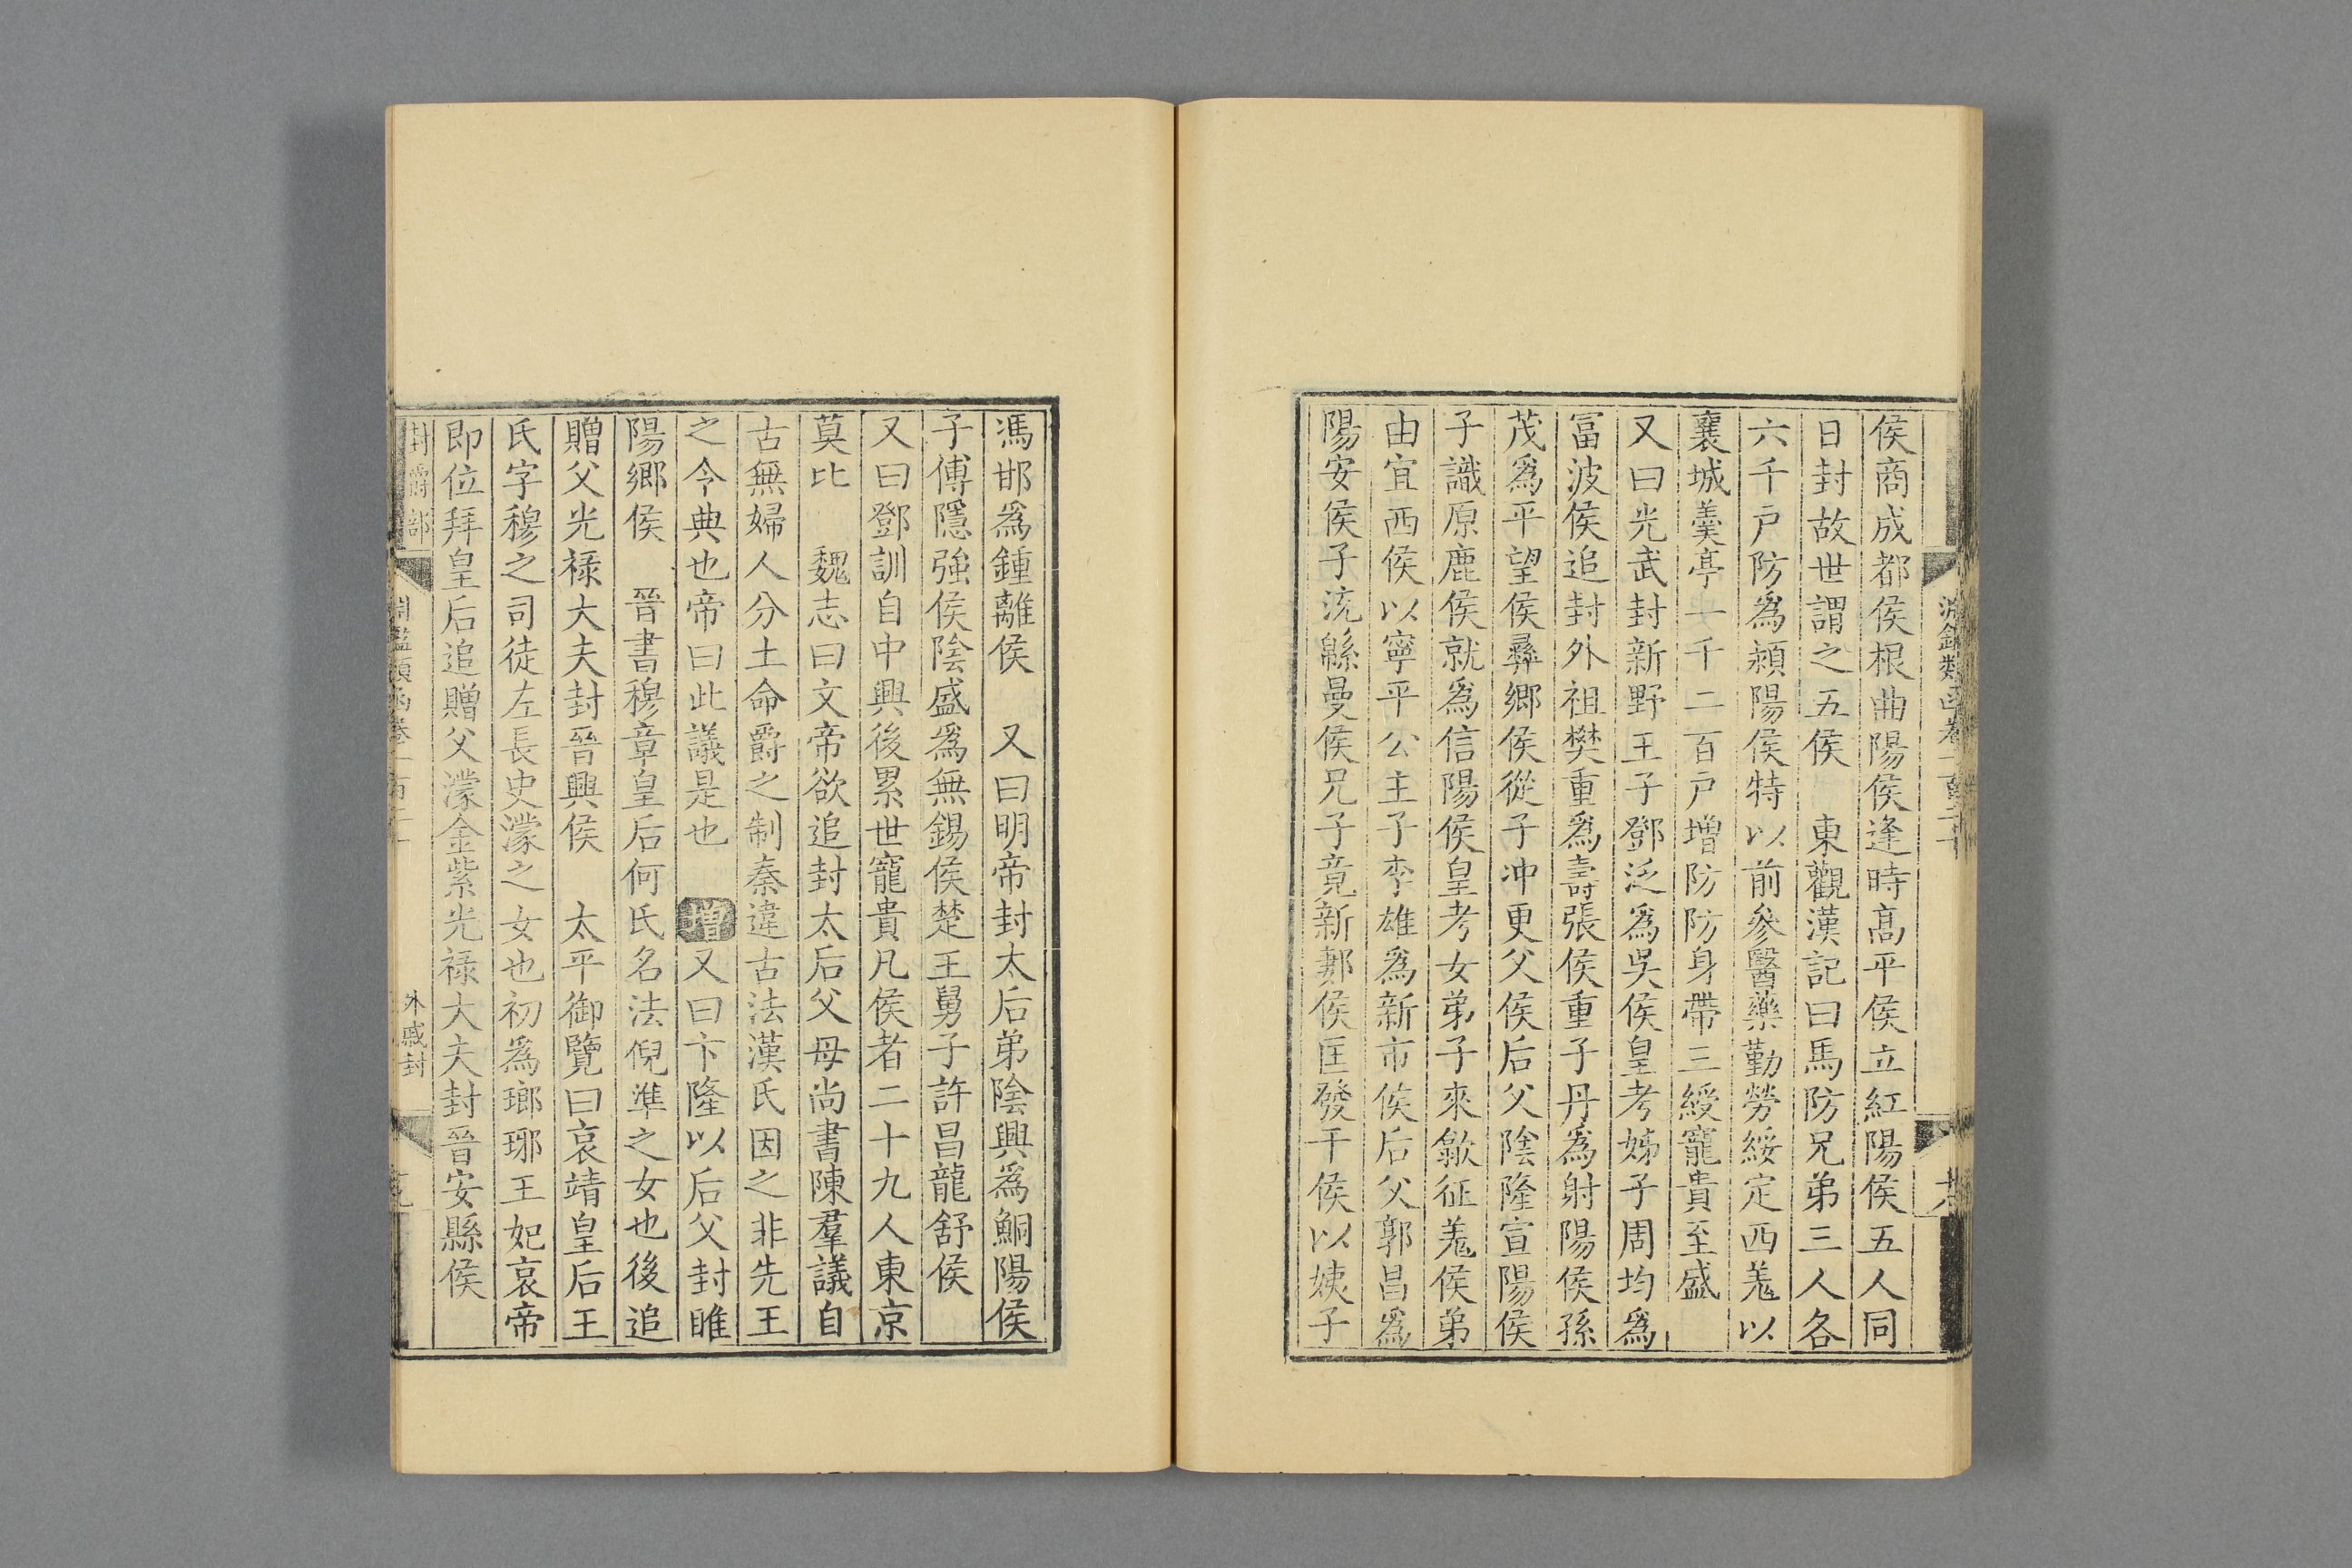 侯商成都侯根曲陽侯逢時髙平侯立紅陽侯五人同
日封故世謂之五侯　東觀漢記曰馬防兄弟三人各
六千戸防爲潁陽侯特以前參醫藥勤勞綏定西羗以
襄城羹亭一千二百戸增防防身帶三綬寵貴至盛
又曰光武封新野王子鄧泛爲吳侯皇考姊子周均爲
富波侯追封外祖樊重爲壽張侯重子丹爲射陽侯孫
茂爲平望侯彞鄉侯從子冲更父侯后父陰隆宣陽侯
子識原鹿侯就爲信陽侯皇考女弟子來歙征羗侯弟
由宜西侯以寧平公主子李雄爲新市侯后父郭昌爲
陽安侯子流緜曼侯兄子竟新郪侯匡發干侯以姨子
馮邯爲鍾離侯　又曰明帝封太后弟陰興爲鮦陽侯
子傅隱強侯陰盛爲無錫侯楚王舅子許昌龍舒侯
又曰鄧訓自中興後累世寵貴凡侯者二十九人東京
莫比　魏志曰文帝欲追封太后父母尚書陳羣議自
古無婦人分土命爵之制秦違古法漢氏因之非先王
之令典也帝曰此議是也　增又曰卞隆以后父封睢
陽鄉侯　晉書穆章皇后何氏名法倪準之女也後追
贈父光禄大夫封晉興侯　太平御覽曰哀靖皇后王
氏字穆之司徒左長史濛之女也初爲瑯琊王妃哀帝
即位拜皇后追贈父濛金紫光禄大夫封晉安縣侯
封爵部
外戚封